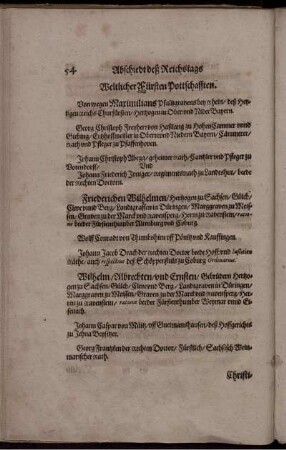 54 Abschiedt deß Reichstags
Weltlicher Fürsten Pottschafften.
Von wegen Maximilians Pfaltzgravens bey Rhein / deß Hey-
ligen Reichs Churfürsten / Hertzogen in Ober und Nider Bayern.
Georg Christoph Freyherr von Haßlang zu Hohen Cammer und
Giebing / Erbhoffmeister in Obern und Niedern Bayern / Cämmerer /
Rath und Pfleger zu Pfaffenhoven.
Johann Christoph Abegg / geheimer Rath / Cantzler und Pfleger zu
Und
Johann Friederich Imniger / Regiments Rath zu Landtshut / bee-
der der Rechten Doctorn.
Friederichen Wilhelmen / Hertzogen zu Sachsen / Gülch /
Cleve und Berg / Landgraffen in Düringen / Marggraven zu Meis-
sen / Graven zu der Marck und Ravenspurg / Herrn zu Ravenstein /
beeder Fürstenthumber Altenburg und Coburg.
Wolff Conradt von Thumbshirn uff Pönitz und Kauffingen.
Johann Jacob Drach der Rechten Doctor beede Hoff und Justitien
Räthe / auch respective deß Schöpenstuls zu Coburg Ordinarius.
Wilhelm / Albrechten / und Ernsten / Gebrüdern Hertzo-
gen zu Sachsen / Gülch / Cleve und Berg / Landgraven in Düringen /
Marggraven zu Meissen / Graven zu der Marck und Ravenspurg / Her-
ren zu Ravenstein / ratione beeder Fürstenthumber Weymar und Ei-
senach.
Johann Caspar von Miltz / uff Guermanshausen / deß Hoffgerichts
zu Jehna Beysitzer.
Georg Frantzken der Rechten Doctor / Fürstlich / Sächsisch Wei-
marischer Rath.
Christi-